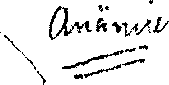 Anämie